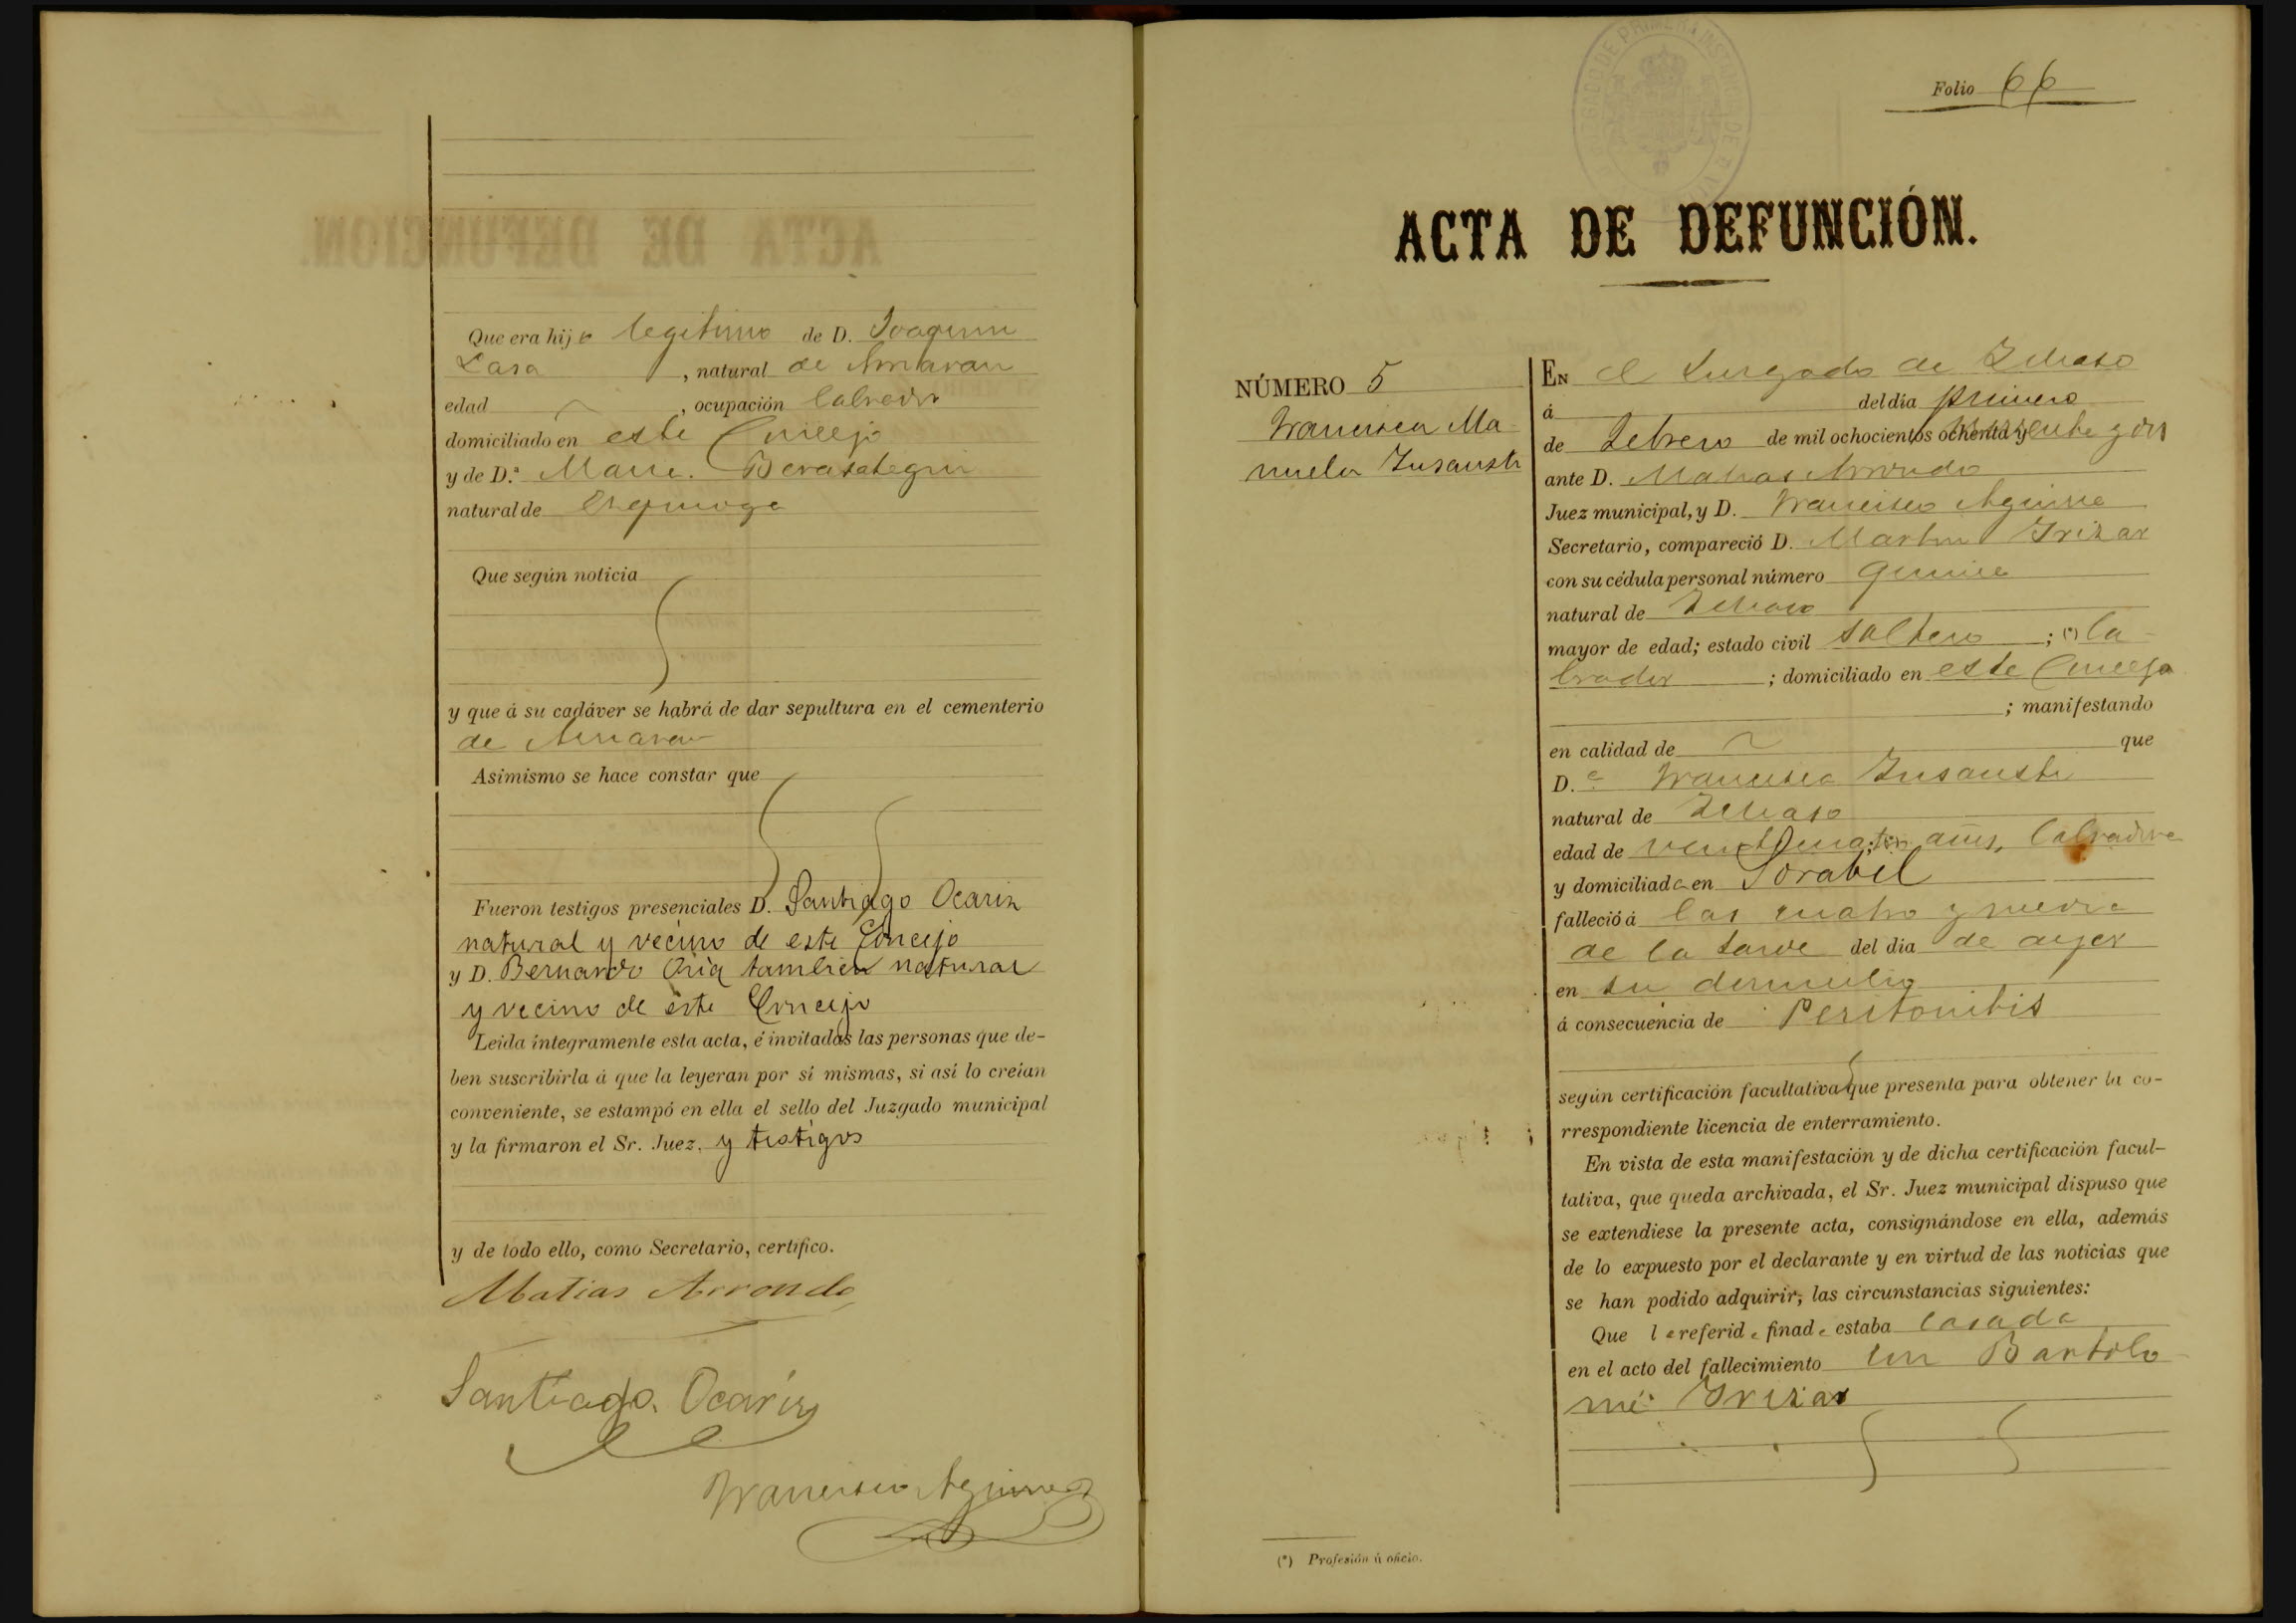 Que era hijo legitimo de D. Joaquin
Lasa, natural de Amavan
edad, ocupación labrador
domiciliado en este Concejo
y de D.ª Maria Berasategui
natural de Esquioga
Que según noticia
y que á su cadáver se habrá de dar sepultura en el cementerio
de
Asimismo se hace constar que
Fueron testigos presenciales D. Santiago Ocariz
natural y vecino de este Concejo
y D. Bernardo Oria tambien natural
y vecino de este Concejo
Leida íntegramente esta acta, é invitadas las personas que de-
ben suscribirla á que la leyeran por sí mismas, si así lo creían
conveniente, se estampó en ella el sello del Juzgado municipal
y la firmaron el Sr. Juez, y testigos
y de todo ello, como Secretario, certifico.
Matias Arrondo
Santiago Ocariz
Francisco Aguirre
Folio 66
ACTA DE DEFUNCIÓN.
NÚMERO 5
Francisca Ma-
nuela Insausti
EN el Juzgado de Ichaso
á del día primero
de Febrero de mil ochocientos ochenta y noventa y dos
ante D. Matias Arrondo
Juez municipal, y D. Francisco Aguirre
Secretario, compareció D. Martin Irizar
con su cédula personal número quince
natural de Ichaso
mayor de edad; estado civil soltero; (*) la-
brador; domiciliado en este Concejo
; manifestando
en calidad de que
D.ª Francisca Insausti
natural de Ichaso
edad de años, labradora
y domiciliada en Sorabil
falleció á las cuatro y media
de la tarde del dia de ayer
en su domicilio
á consecuencia de Peritonitis
según certificación facultativa que presenta para obtener la co-
rrespondiente licencia de enterramiento.
En vista de esta manifestación y de dicha certificación facul-
tativa, que queda archivada, el Sr. Juez municipal dispuso que
se extendiese la presente acta, consignándose en ella, además
de lo expuesto por el declarante y en virtud de las noticias que
se han podido adquirir, las circunstancias siguientes:
Que la referida finada estaba casada
en el acto del fallecimiento con Bartolo-
mé Irizar
(*) Profesión ú oficio.